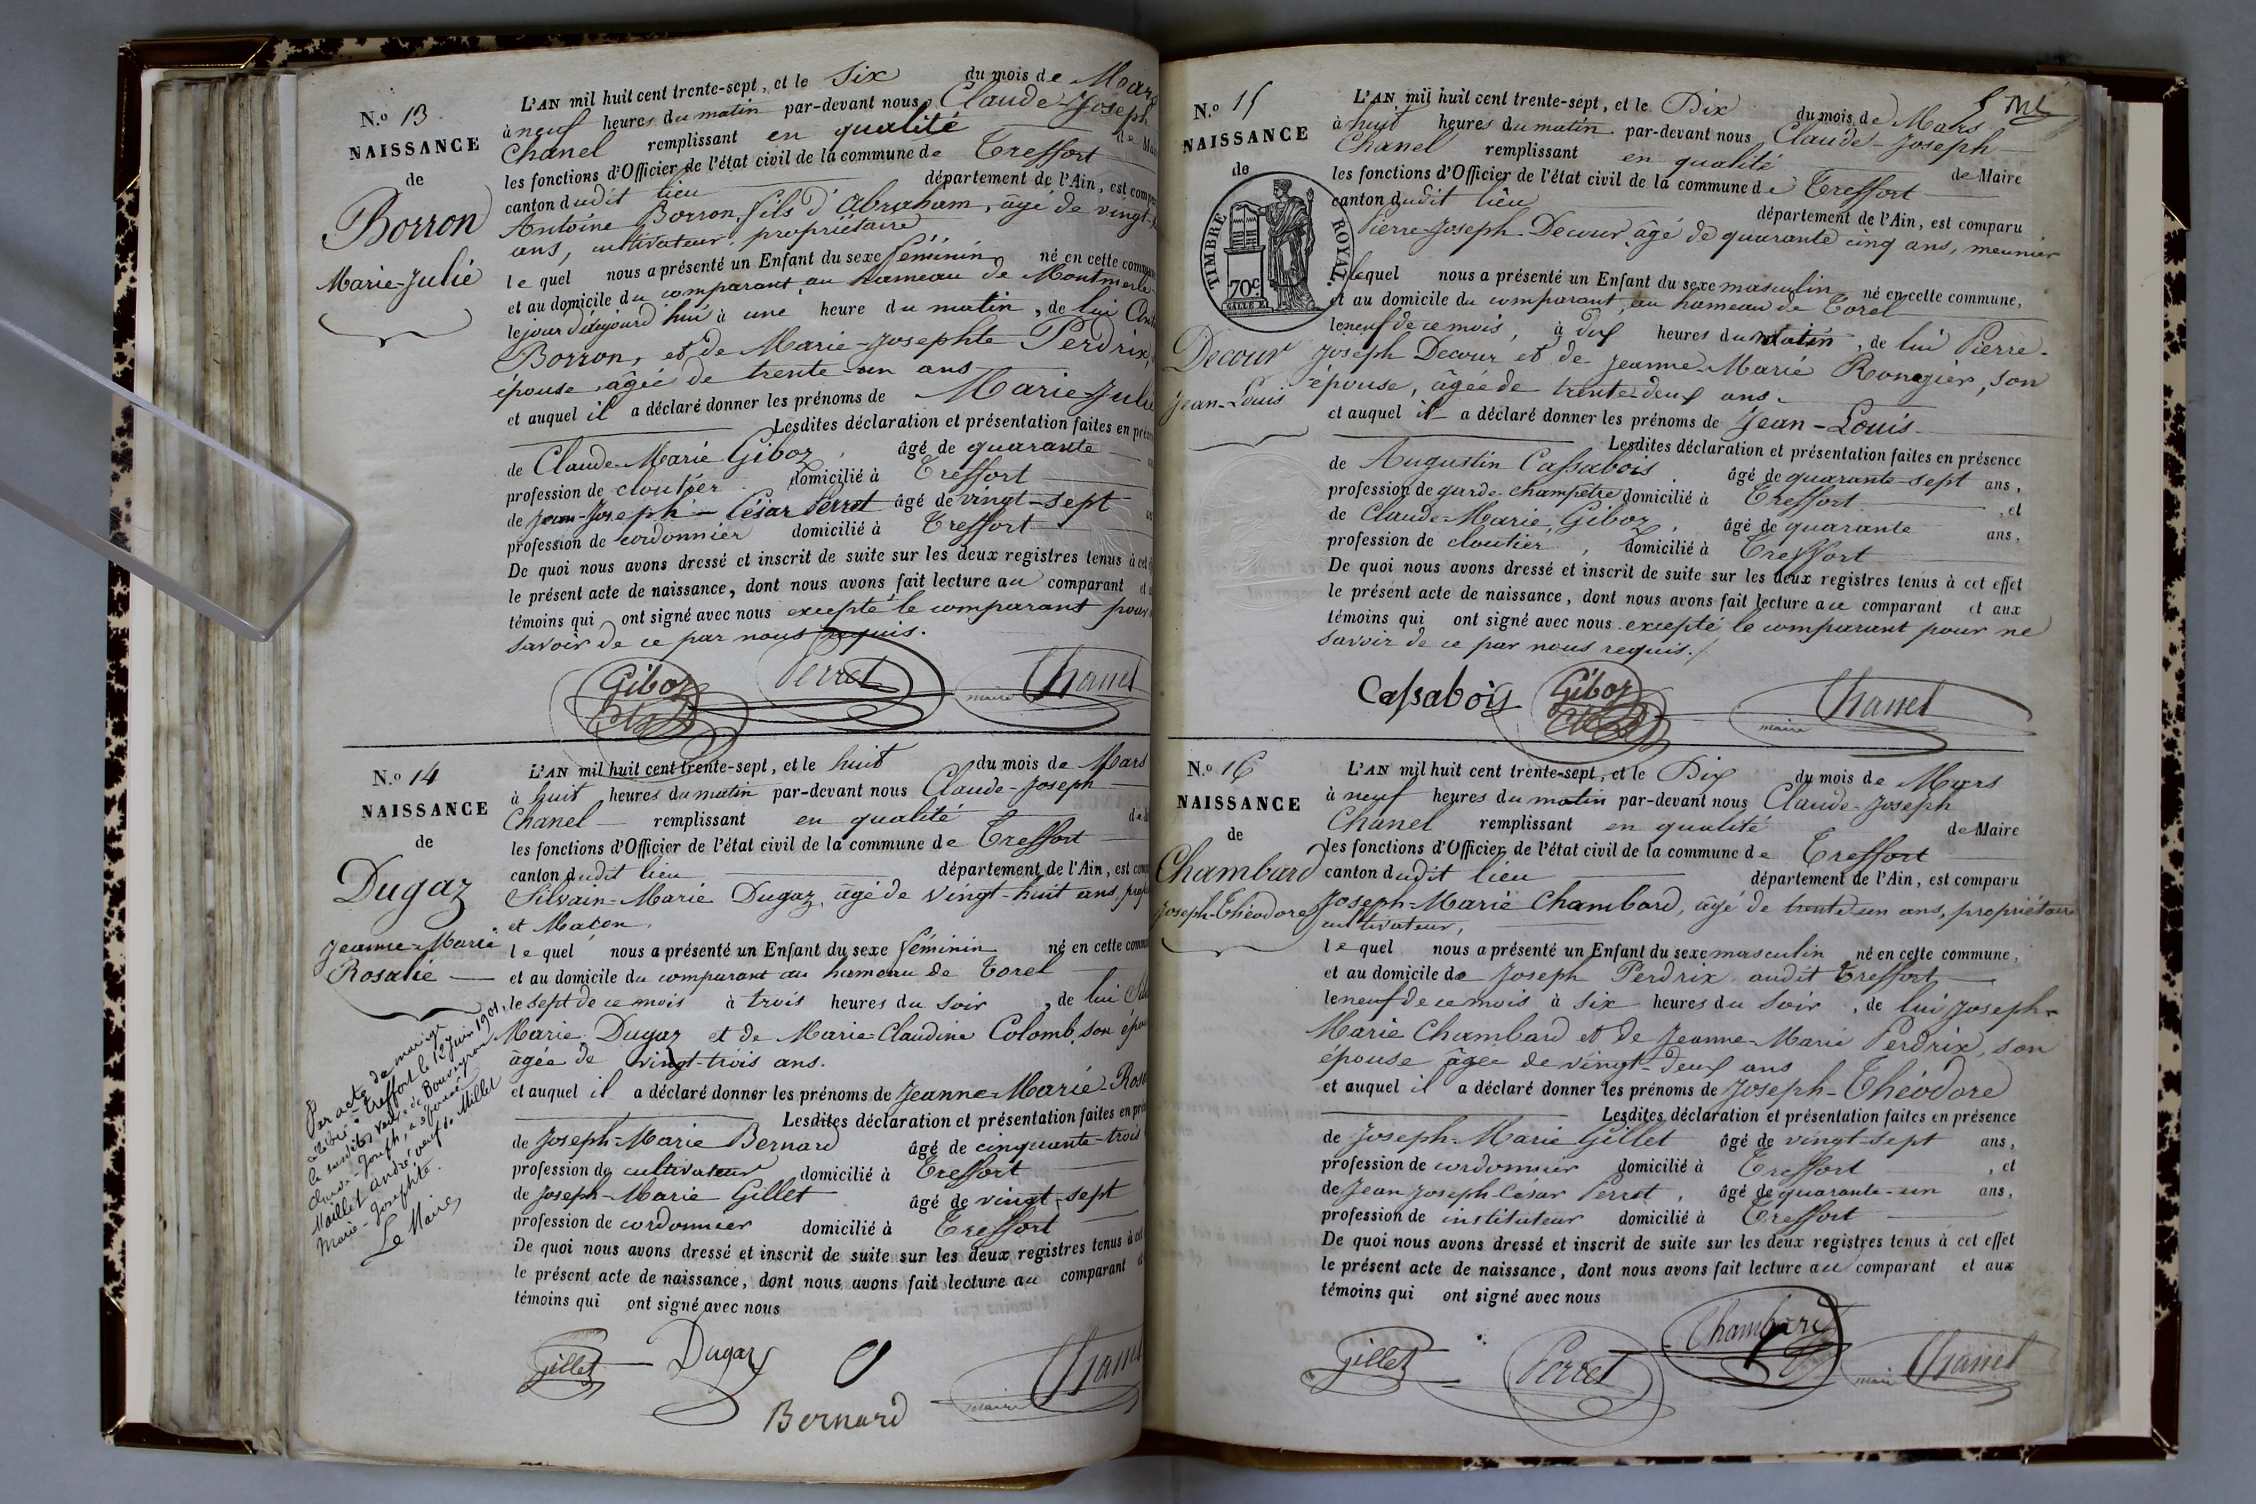 N.º 13
NAISSANCE
de
Borron
Marie-Julie
L'AN mil huit cent trente-sept, et le Six du mois de Mars
à neuf heures du matin par-devant nous Claude-Joseph
Chanel remplissant en qualité de
les fonctions d'Officier de l'état civil de la commune de Treffort
canton dudit lieu département de l'Ain, est
Antoine Borron, fils d'Abraham, âgé de vingt-
ans, cultivateur propriétaire
lequel nous a présenté un Enfant du sexe féminin né en cette
et au domicile du comparant, au hameau de Montmerle
le jour d'aujourd'hui à une heure du matin, de lui
Borron, et de Marie-Josephte Perdrix,
épouse âgée de trente-un ans
et auquel il a déclaré donner les prénoms de Marie-Julie
Lesdites déclaration et présentation faites en
de Claude-Marie Giboz, âgé de quarante
profession de cloutier domicilié à Treffort
de Jean-Joseph-César Perret âgé de vingt-sept
profession de cordonnier domicilié à Treffort
De quoi nous avons dressé et inscrit de suite sur les deux registres tenus à cet
le présent acte de naissance, dont nous avons fait lecture au comparant et
témoins qui ont signé avec nous excepté le comparant pour
savoir de ce par nous requis.
Giboz Perret maire Chanel
N.º 14
NAISSANCE
de
Dugaz
Jeanne-Marie
Rosalie
Par acte de mariage
à Treffort le 12 Juin 1901,
veuve de Bouveyron
Claude-Joseph, a épousé
Maillet andré veuf de Millet
Marie-Josephte.
Le Maire
L'AN mil huit cent trente-sept, et le huit du mois de Mars
à huit heures du matin par-devant nous Claude-Joseph
Chanel remplissant en qualité
les fonctions d'Officier de l'état civil de la commune de Treffort
canton dudit lieu département de l'Ain, est
Silvain-Marie Dugaz, âgé de vingt-huit ans,
et Maçon,
lequel nous a présenté un Enfant du sexe féminin né en cette
et au domicile du comparant au hameau de Torel
le sept de ce mois à trois heures du soir, de lui
Marie Dugaz et de Marie-Claudine Colomb, son
âgée de vingt-trois ans.
et auquel il a déclaré donner les prénoms de Jeanne-Marie-
Lesdites déclaration et présentation faites en
de Joseph-Marie Bernard âgé de cinquante-trois
profession de cultivateur domicilié à Treffort
de Joseph-Marie Gillet âgé de vingt-sept
profession de cordonnier domicilié à Treffort
De quoi nous avons dressé et inscrit de suite sur les deux registres tenus à
le présent acte de naissance, dont nous avons fait lecture au comparant
témoins qui ont signé avec nous
Gillet Dugaz maire Chanel
Bernard
N.º 15
NAISSANCE
de
TIMBRE ROYAL.
70c.
Decour
Jean-Louis
L'AN mil huit cent trente-sept, et le Dix du mois de Mars
à huit heures du matin par-devant nous Claude-Joseph
Chanel remplissant en qualité de Maire
les fonctions d'Officier de l'état civil de la commune de Treffort
canton dudit lieu département de l'Ain, est comparu
Pierre-Joseph Decour, âgé de quarante cinq ans, meunier
lequel nous a présenté un Enfant du sexe masculin né en cette commune,
et au domicile du comparant, au hameau de Torel
le neuf de ce mois, à dix heures du matin, de lui Pierre-
Joseph Decour et de Jeanne-Marie Rongier, son
épouse, âgée de trente-deux ans.
et auquel il a déclaré donner les prénoms de Jean-Louis
Lesdites déclaration et présentation faites en présence
de Augustin Cassabois, âgé de quarante-sept ans,
profession de garde-champêtre domicilié à Treffort, et
de Claude-Marie Giboz, âgé de quarante ans,
profession de cloutier, domicilié à Treffort
De quoi nous avons dressé et inscrit de suite sur les deux registres tenus à cet effet
le présent acte de naissance, dont nous avons fait lecture au comparant et aux
témoins qui ont signé avec nous excepté le comparant pour ne
savoir de ce par nous requis.
Cassabois Giboz maire Chanel
N.º 16
NAISSANCE
de
Chambard
Joseph-Théodore
L'AN mil huit cent trente-sept, et le Dix du mois de Mars
à neuf heures du matin par-devant nous Claude-Joseph
Chanel remplissant en qualité de Maire
les fonctions d'Officier de l'état civil de la commune de Treffort
canton dudit lieu département de l'Ain, est comparu
Joseph-Marie Chambard, âgé de trente-un ans, propriétaire
cultivateur,
lequel nous a présenté un Enfant du sexe masculin né en cette commune,
et au domicile de Joseph Perdrix audit Treffort
le neuf de ce mois à six heures du soir, de lui Joseph-
Marie Chambard et de Jeanne-Marie Perdrix, son
épouse âgée de vingt-deux ans
et auquel il a déclaré donner les prénoms de Joseph-Théodore
Lesdites déclaration et présentation faites en présence
de Joseph-Marie Gillet âgé de vingt-sept ans,
profession de cordonnier domicilié à Treffort, et
de Jean Joseph-César Perret, âgé de quarante-un ans,
profession de instituteur domicilié à Treffort
De quoi nous avons dressé et inscrit de suite sur les deux registres tenus à cet effet
le présent acte de naissance, dont nous avons fait lecture au comparant et aux
témoins qui ont signé avec nous
Gillet Perret Chambard maire Chanel